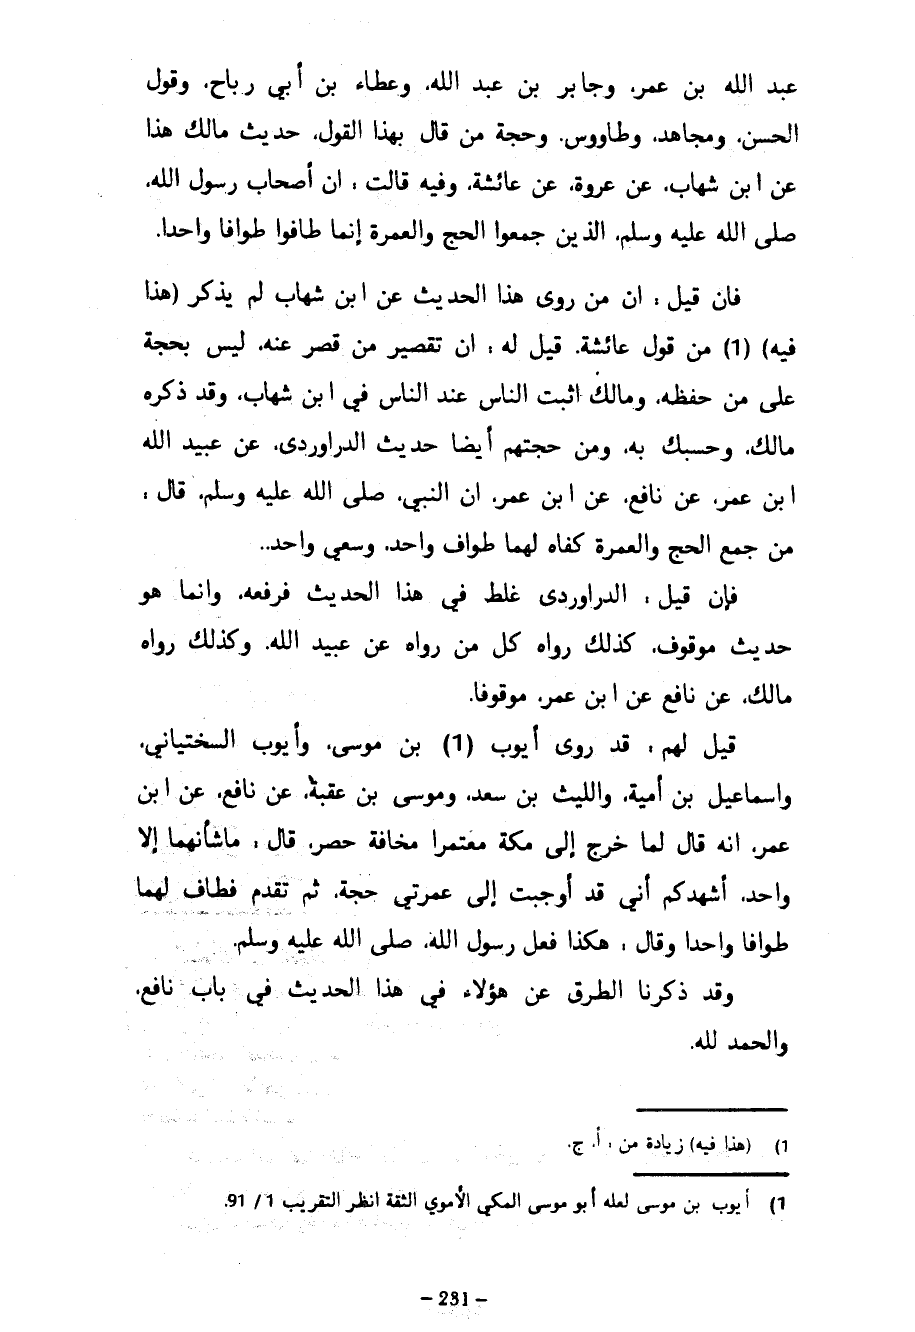 عبد الله بن عمر، وجابر بن عبد الله، وعطاء بن أبي رباح، وقول
الحسن، ومجاهد، وطاووس. وحجة من قال بهذا القول، حديث مالك هذا
عن ابن شهاب، عن عروة، عن عائشة، وفيه قالت : ان أصحاب رسول الله،
صلى الله عليه وسلم، الذين جمعوا الحج والعمرة إنما طافوا طوافا واحدا.
فان قيل : ان من روى هذا الحديث عن ابن شهاب لم يذكر (هذا
فيه) (1) من قول عائشة. قيل له : ان تقصير من قصر عنه، ليس بحجة
على من حفظه، ومالك اثبت الناس عند الناس في ابن شهاب، وقد ذكره
مالك، وحسبك به، ومن حجتهم أيضا حديث الدراوردى، عن عبيد الله
ابن عمر، عن نافع، عن ابن عمر، ان النبي، صلى الله عليه وسلم، قال :
من جمع الحج والعمرة كفاه لهما طواف واحد، وسعي واحد..
فإن قيل : الدراوردى غلط في هذا الحديث فرفعه، وانما هو
حديث موقوف، كذلك رواه كل من رواه عن عبيد الله. وكذلك رواه
مالك، عن نافع عن ابن عمر، موقوفا.
قيل لهم : قد روى أيوب (1) بن موسى، وأيوب السختياني،
واسماعيل بن أمية، والليث بن سعد، وموسى بن عقبة، عن نافع، عن ابن
عمر، انه قال لما خرج إلى مكة معتمرا مخافة حصر، قال : ماشأنهما إلا
واحد، أشهدكم أني قد أوجبت إلى عمرتي حجة، ثم تقدم فطاف لهما
طوافا واحدا وقال : هكذا فعل رسول الله، صلى الله عليه وسلم.
وقد ذكرنا الطرق عن هؤلاء في هذا الحديث في باب نافع،
والحمد لله.
1) (هذا فيه) زيادة من : أ. ج.
1) أيوب بن موسى لعله أبو موسى المكي الأموي الثقة انظر التقريب 1 / 91.
- 231 -